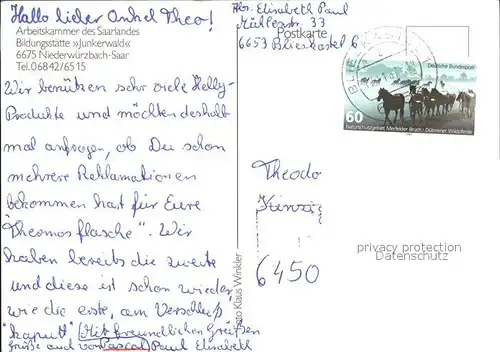 Hallo lieber Onkel Theo!
Arbeitskammer des Saarlandes
Bildungsstätte »Junkerwald«
6675 Niederwürzbach-Saar
Tel. 06842/6515
Wir benützen sehr viele Helly-
Produkte und möchten deshalb
mal anfragen, ob Du schon
mehrere Reklamationen
bekommen hast für Eure
"Theomosflasche". Wir
haben bereits die zweite
und diese ist schon wieder,
wie die erste, am Verschluß
"kaputt" Mit freundlichen Grüßen
Grüße auch von Pascal Paul Elisabeth
Foto Klaus Winkler
Abs. Elisabeth Paul
Mühlenstr. 33
Postkarte
6653 Blieskastel 6
Deutsche Bundespost
60
Naturschutzgebiet Merfelder Bruch · Dülmener Wildpferde
Theodo
Kinzig
6450
privacy protection
Datenschutz